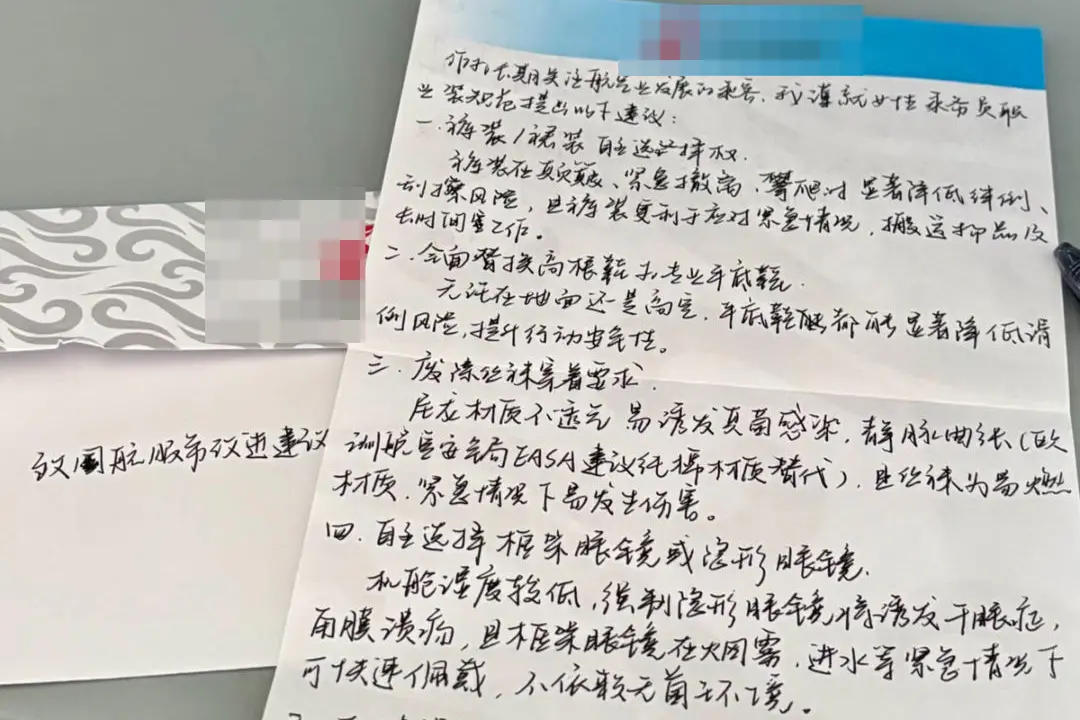 作为长期关注航空业发展的乘客，我谨就女性乘务员职
业装规范提出以下建议：
一.裤装/裙装自主选择权.
裤装在颠簸、紧急撤离、攀爬时显著降低绊倒、
刮擦风险，且裤装更利于应对紧急情况，搬运物品及
长时间工作。
二.全面替换高根鞋为专业平底鞋.
无论在地面还是高空，平底鞋都能显著降低滑
倒风险，提升行动安全性。
三.废除丝袜穿着要求.
尼龙材质不透气易诱发真菌感染，静脉曲张（欧
洲航空安全局EASA建议纯棉材质替代），且丝袜为易燃
材质.紧急情况下易发生伤害。
四.自主选择框架眼镜或隐形眼镜.
机舱湿度较低，强制隐形眼镜将诱发干眼症，
角膜溃疡，且框架眼镜在火图雾，进水等紧急情况下
可快速佩戴，不依赖无菌环境。
致国航服饰改进建议